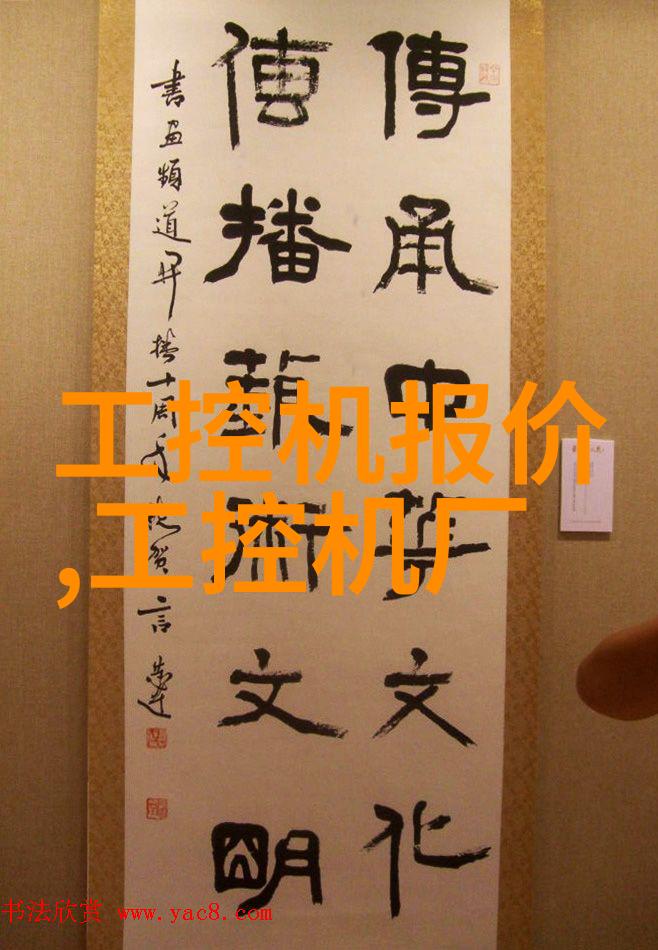 傳承中華文化
傳播藝術文明
書画頻道開播十周年
賀
言
工控机报价
,工控机厂
书法欣赏 www.yac8.com